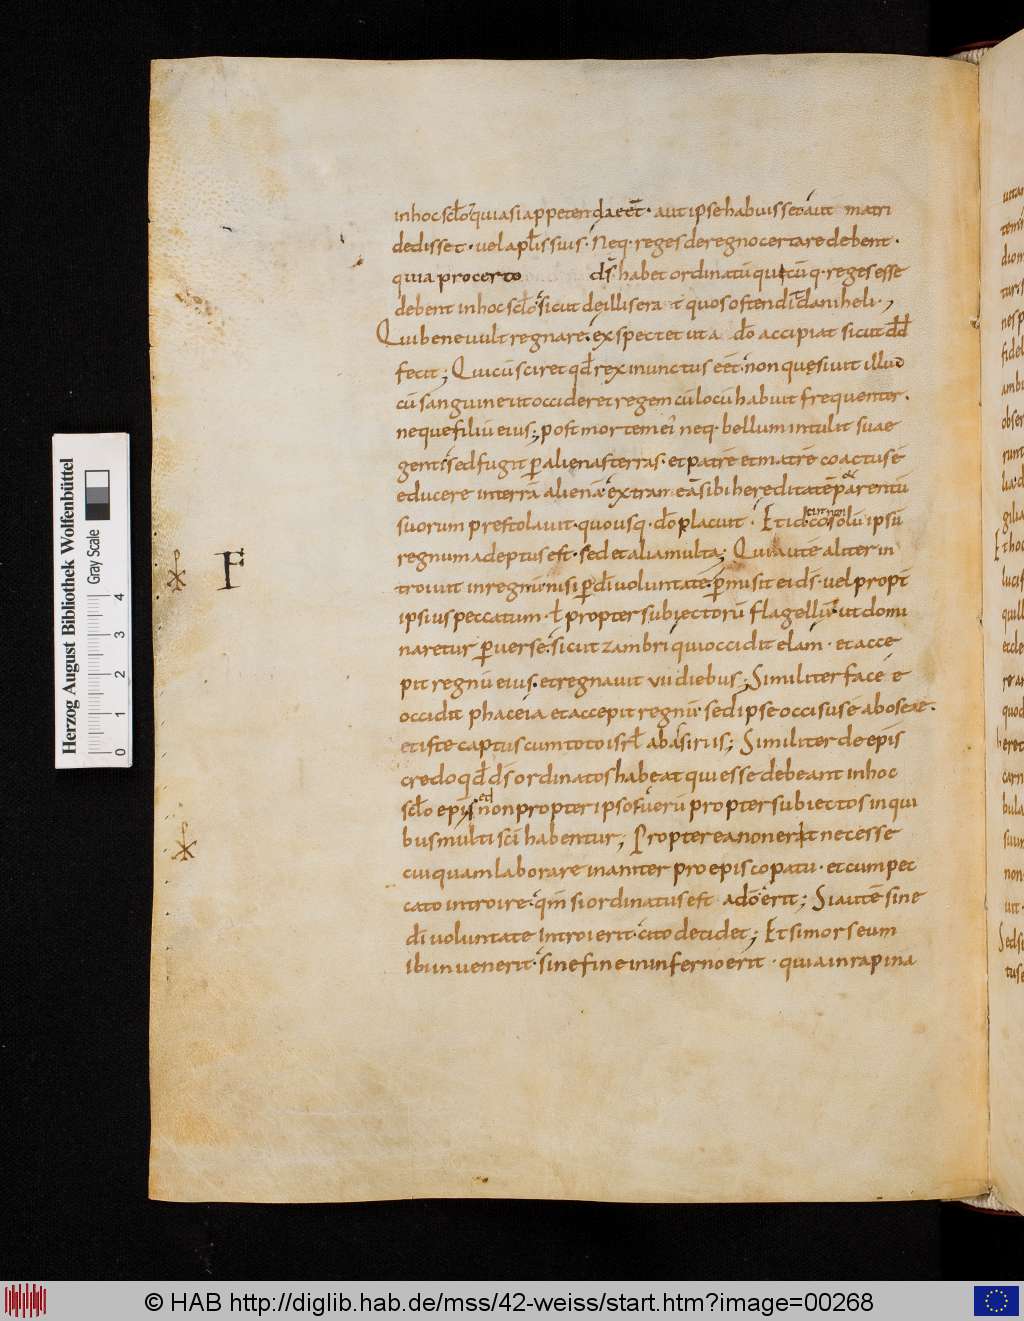 inhoc scło quia si appetenda eēt · aut ipse habuisset aut matri
dedisset · vel aplis suis · Neq· reges de regno certare debent ·
quia pro certo ds habet ordinatū quicūq· reges esse
debent in hoc scło sicut de illis erat quos ostendit daniheli ·,
Qui bene vult regnare · expectet ut a dō accipiat sicut dd
fecit; Qui cū sciret qđ rex inunctus eēt · non quęsivit illud
cū sanguine ut occideret regem cū locū habuit frequenter ·
neque filiū eius; post mortem ei neq· bellum intulit suae
genti sed fugit p alienas terras · et patrē et matrē coactus ē
educere in terrā alienā extraneā sibi hereditatē parentū
suorum prestolavit · quousq· dō placuit · Et id
regnum adeptus est · sed et alia multa; Qui autē aliter in
troivit in regnū nisi p dī voluntatē · pmisit ei ds · vel propt
ipsius peccatum · ł propter subiectorū flagellū · ut domi
naretur pverse · sicut zambri qui occidit elam · et acce
pit regnū eius · et regnavit vii diebus; Similiter facee
occidit phaceia et accepit regnū sed ipse occisus ē ab oseae ·
et iste captus cum toto isrł ab asiriis; Similiter de epis
credo qđ ds ordinatos habeat qui esse debeant in hoc
scło epis et non propter ipsos verū propter subiectos in qui
bus multi sci habentur; Propterea non erit necesse
cuiquam laborare inaniter pro episcopatu · et cum pec
cato introire · qm si ordinatus est a dō erit; Si autē sine
dī voluntate introierit · cito decidet; Et si mors eum
ibi invenerit · sine fine in inferno erit · quia in rapina
F
Herzog August Bibliothek Wolfenbüttel
Gray Scale
0 1 2 3 4
© HAB http://diglib.hab.de/mss/42-weiss/start.htm?image=00268